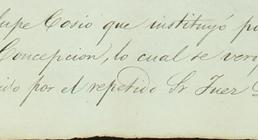 lupe Cosio que instituyó po
Concepcion, lo cual se veri
ido por el repetido Sr Juez